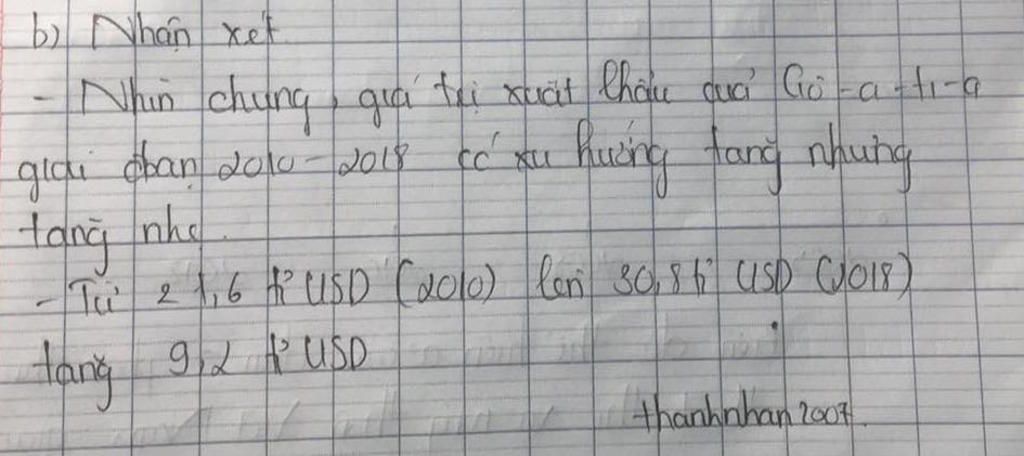 b) Nhận xét
- Nhìn chung, giá trị xuất khẩu của Cô-a-ti-a
giai đoạn 2010-2018 có xu hướng tăng nhưng
tăng nhẹ.
- Từ 21,6 tỉ USD (2010) lên 30,8 tỉ USD (2018)
tăng 9,2 tỉ USD
thanhnhan2007